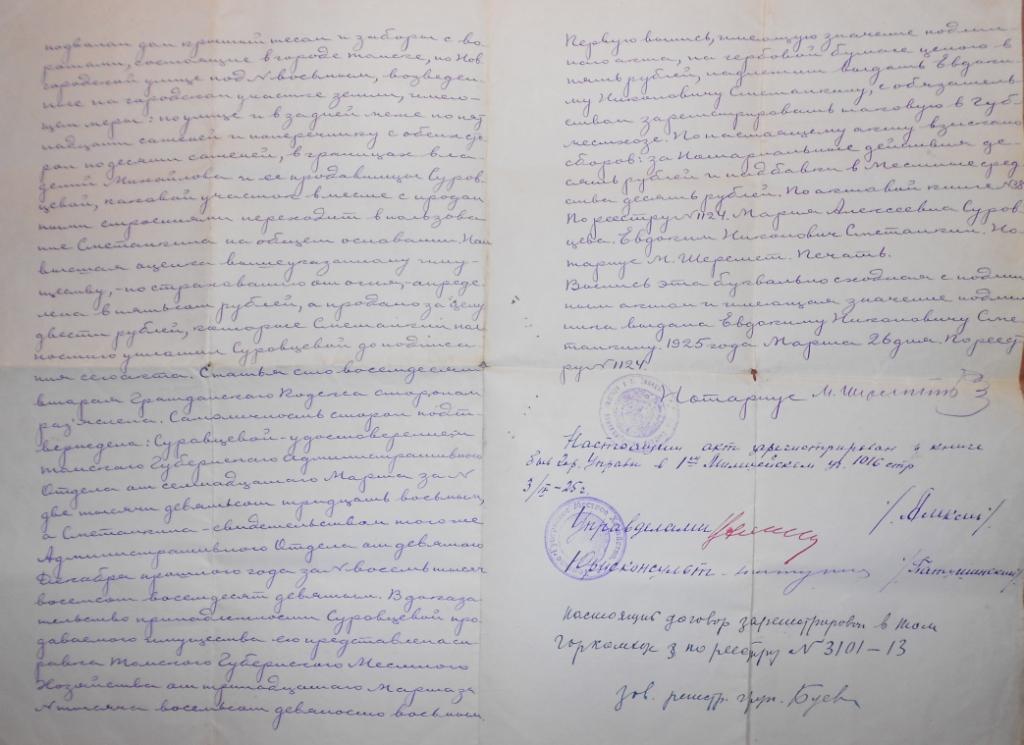 подвалам дом крытый тесом и заборы с во-
ротами, состоящие в городе Томске, по Нов-
городской улице под N восьмым, возведен-
ные на городском участке земли, имею-
щем меры: по улице и в задней меже по пят
надцати саженей и поперечнику с обеих сто-
рон по десяти саженей, в границах вла
дений Михайлова и ее продавицы Суров-
цевой, каковой участок вместе с продан
ными строениями переходит в пользова
ние Сметанкина на общем основании. На
высшая оценка вышеуказанному иму-
ществу, - по страхованию от огня, - опреде-
лена в пятьсот рублей, а продано за цену
двести рублей, которые Сметанкин пол
ностию уплатил Суровцевой до подписа
ния сего акта. Статья сто восемдесят
вторая Гражданского Кодекса сторонам
раз'яснена. Самоличность сторон подт-
верждена: Суровцевой - удостоверением
Томского Губернского Административного
Отдела от семнадцатого Марта за N
две тысячи девятьсот тридцать восьмым,
а Сметанкина - свидетельством того же
Административного Отдела от девятого
Декабря прошлого года за N восемь тысяч
восемсот восемдесят девятым. В доказа
тельство принадлежности Суровцевой про
даваемого имущества ею представлена сп
равка Томского Губернского Местного
Хозяйства от тринадцатого Марта за
N тысяча восемьсот девяносто восьмым.
Первую выпись, имеющую значение подлин
ного акта, на гербовой бумаге ценою в
пять рублей, надлежит выдать Евдоки-
му Никоновичу Сметанкину, с обязатель-
ством зарегистрировать таковую в Губ-
местхозе. По настоящему акту взыскано
сборов: за Нотариальные действия де-
сять рублей и надбавки в Местные сред
ства десять рублей. По актовой книге N 38
По реестру N 1124. Мария Алексеевна Суров
цева. Евдоким Никонович Сметанкин. Но-
тариус М. Шеремет. Печать.
Выпись эта буквально сходная с подлин
ным актом и имеющая значение подлин
ника выдана Евдокиму Никоновичу Сме-
танкину. 1925 года Марта 26 дня. По реест
ру N 1124.
Нотариус М. Шеремет
Настоящий акт зарегистрирован в книге
быв. Гор. Управы в 1ом Милицейском уч. 1016 стр
3/IV-25 г.
Управделами
Юрисконсульт
Настоящий договор зарегистрирован в Том
Горкомхозе по реестру N 3101-13
зав. регистр.